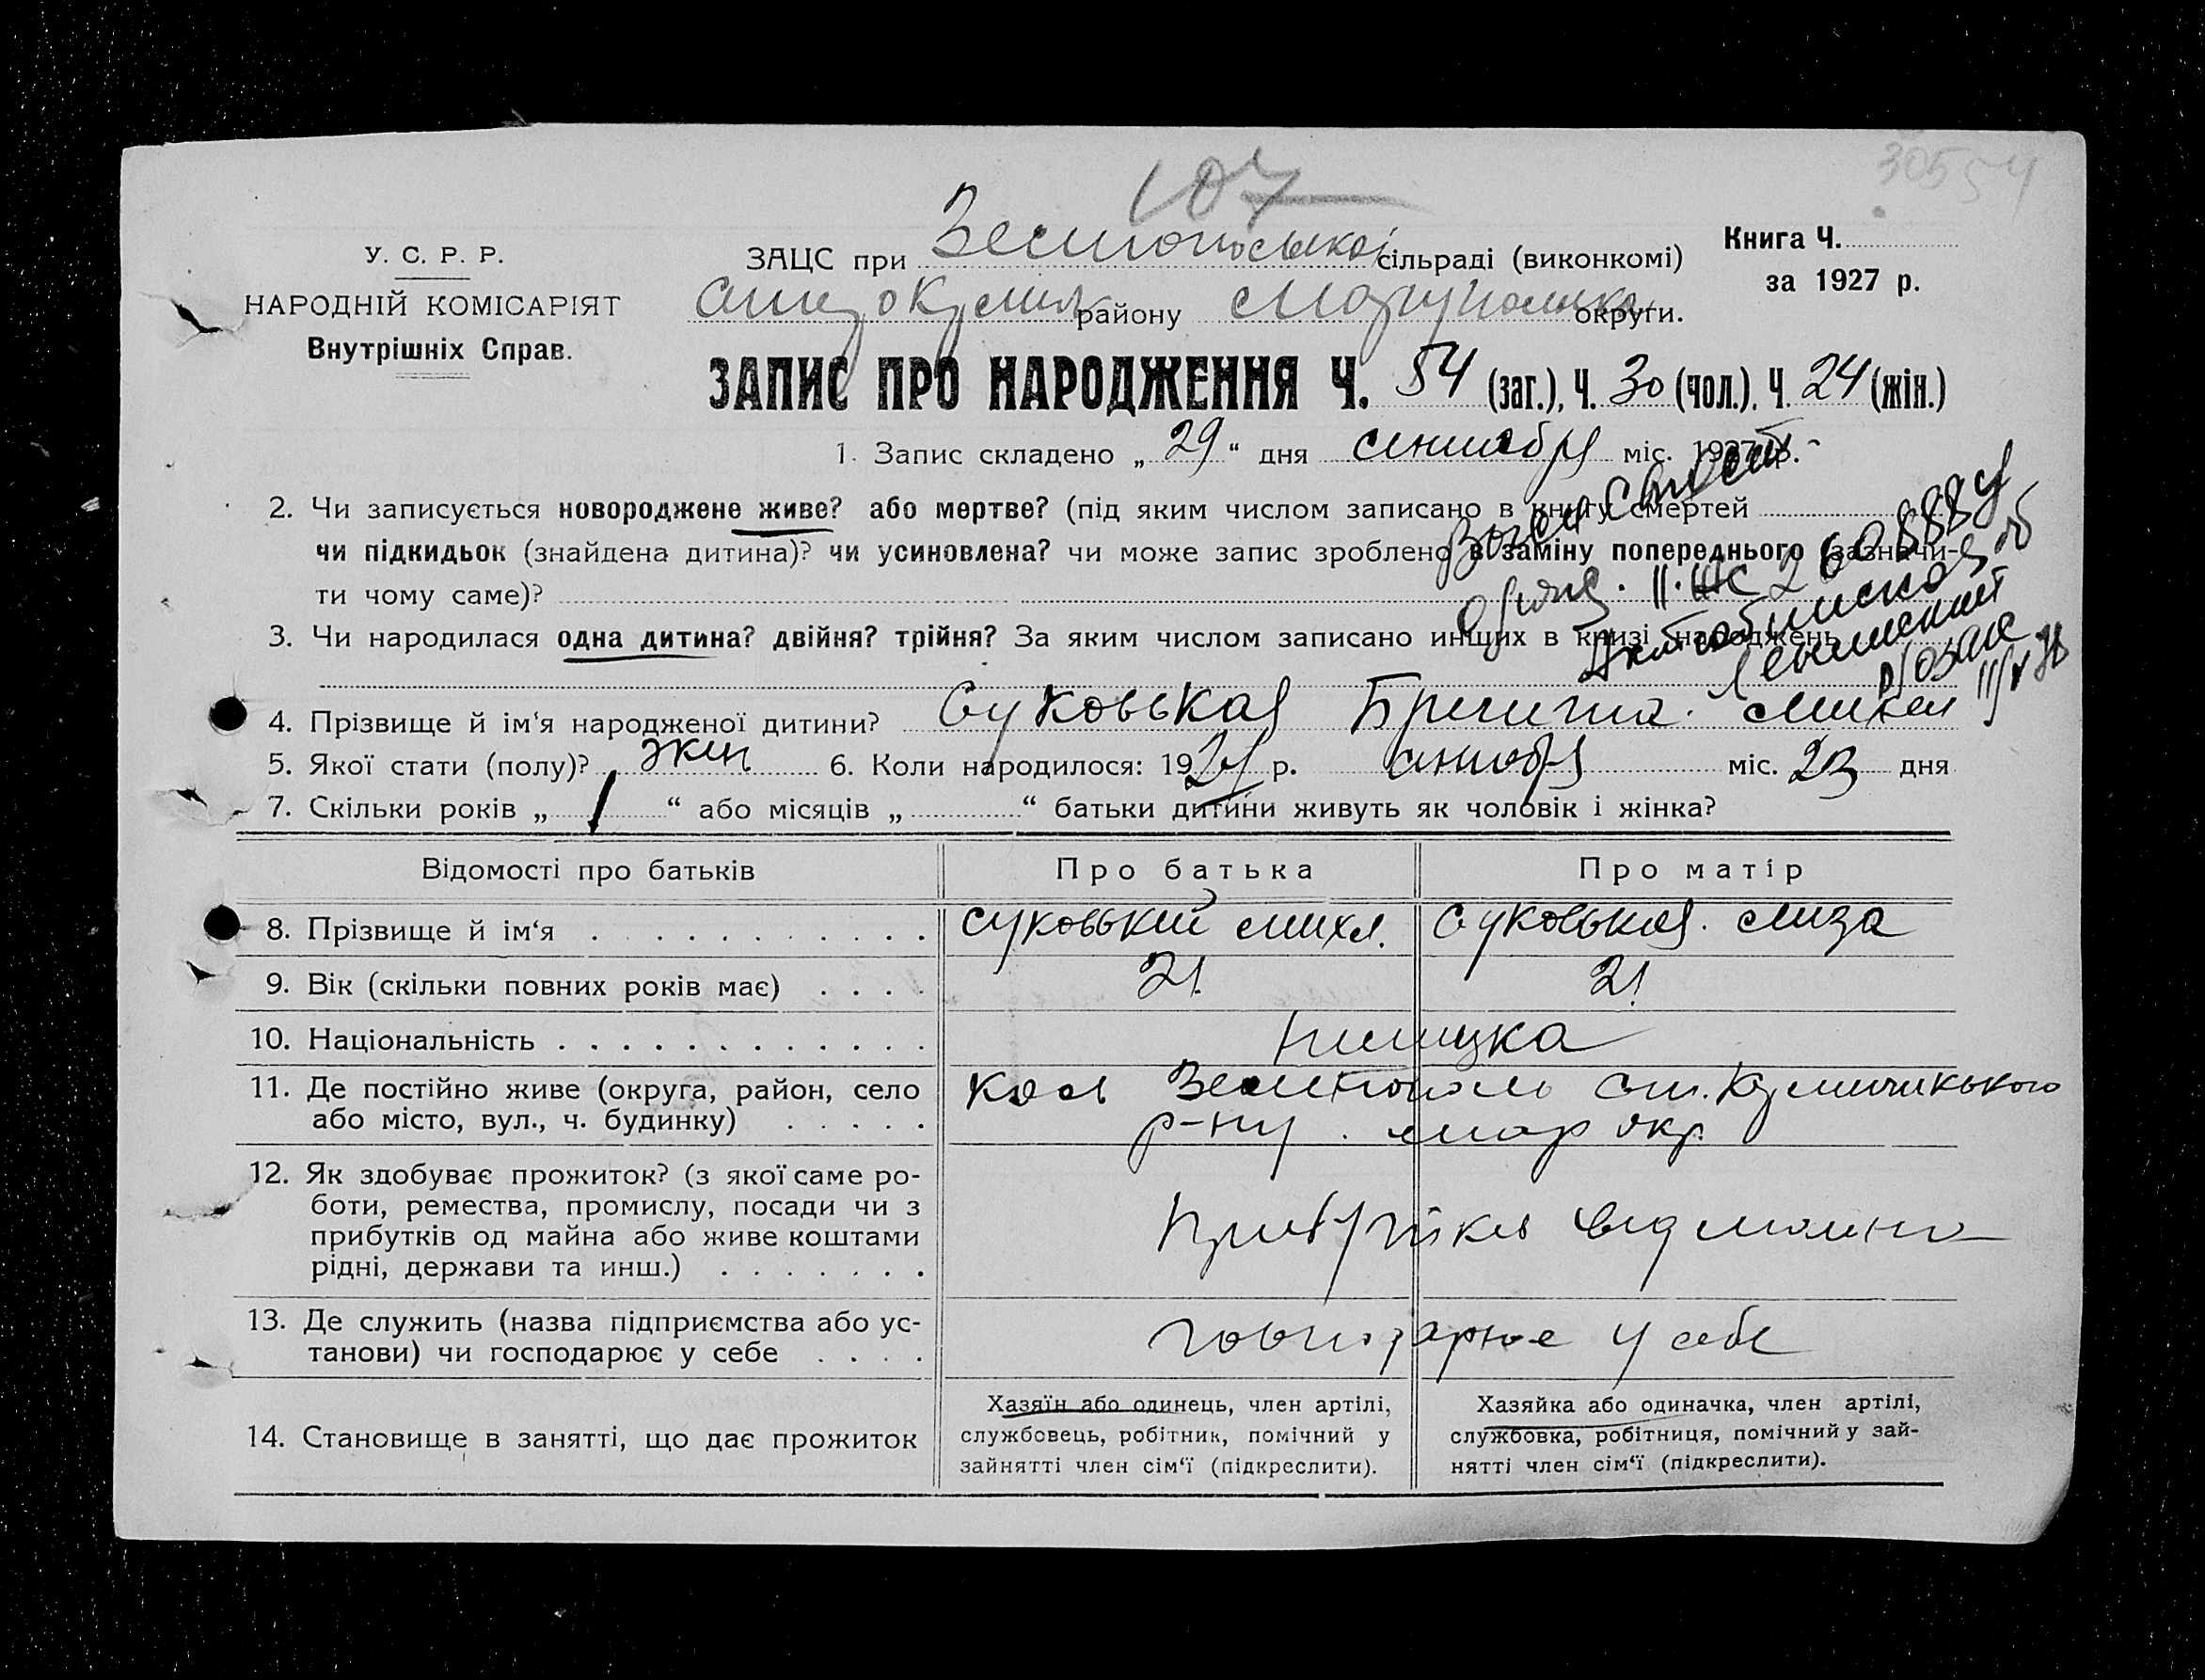 107
30554
У. С. Р. Р.
НАРОДНІЙ КОМІСАРІЯТ
Внутрішніх Справ.
ЗАЦС при сільраді (виконкомі)
району округи.
Книга Ч.
за 1927 р.
ЗАПИС ПРО НАРОДЖЕННЯ Ч. 54 (заг.), Ч. 30 (чол.), Ч. 24 (жін.)
1. Запис складено „ 29 “ дня сентября міс. 1927 р.
2. Чи записується новороджене живе? або мертве? (під яким числом записано в книгу смертей
чи підкидьок (знайдена дитина)? чи усиновлена? чи може запис зроблено в заміну попереднього (зазначи-
ти чому саме)?
3. Чи народилася одна дитина? двійня? трійня? За яким числом записано инших в книзі народжень
4. Прізвище й ім‘я народженої дитини? Суковькая
5. Якої стати (полу)? жен 6. Коли народилося: 1927 р. міс. 23 дня
7. Скільки років „ “ або місяців „ “ батьки дитини живуть як чоловік і жінка?
Відомості про батьків Про батька Про матір
8. Прізвище й ім‘я Суковький Михл. Суковькая Лиза
9. Вік (скільки повних років має) 21. 21.
10. Національність
11. Де постійно живе (округа, район, село
або місто, вул., ч. будинку) р-ну мар окр.
12. Як здобуває прожиток? (з якої саме ро-
боти, ремества, промислу, посади чи з
прибутків од майна або живе коштами
рідні, держави та инш.)
13. Де служить (назва підприємства або ус-
танови) чи господарює у себе господарює у себе
14. Становище в занятті, що дає прожиток
Хазяїн або одинець, член артілі,
службовець, робітник, помічний у
зайнятті член сім‘ї (підкреслити).
Хазяйка або одиначка, член артілі,
службовка, робітниця, помічний у зай-
нятті член сім‘ї (підкреслити).